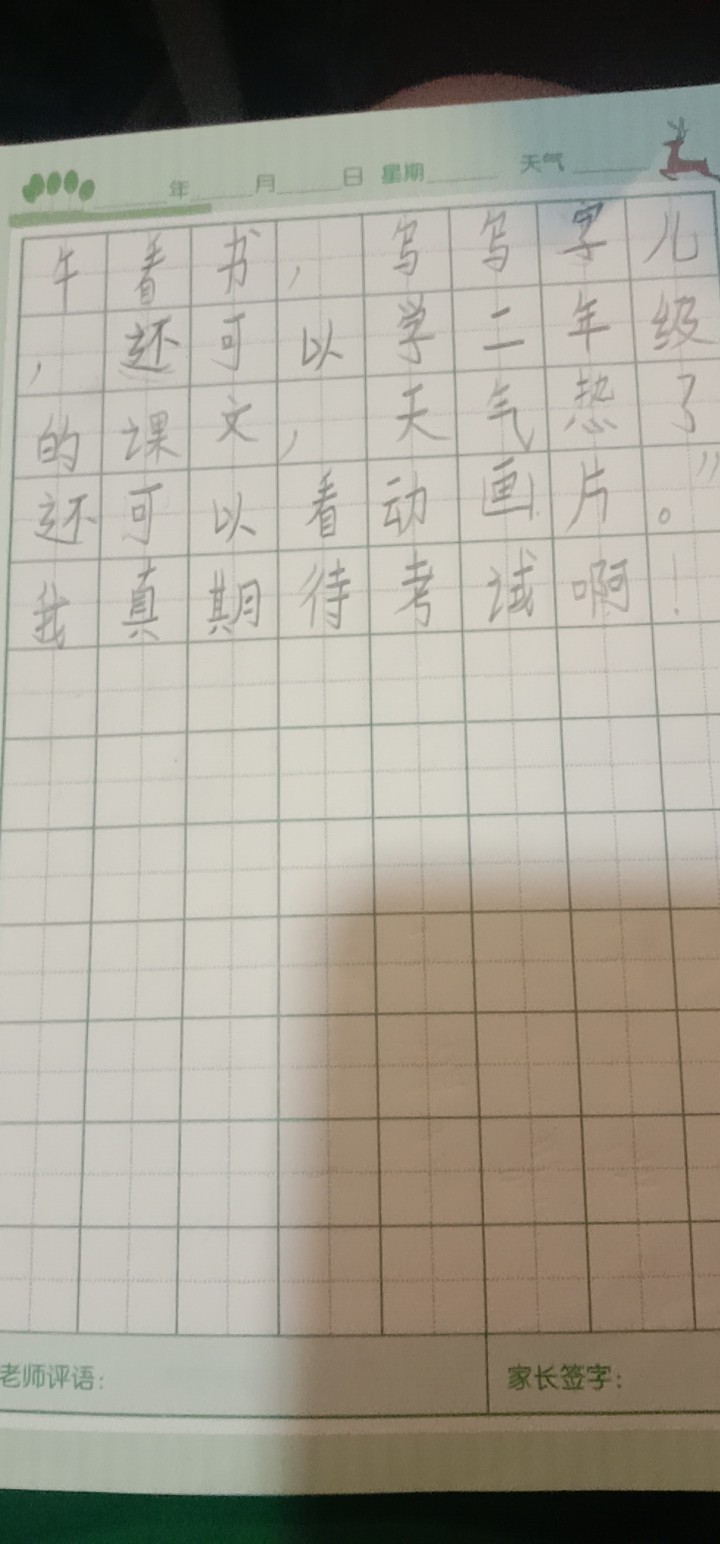 年 月 日 星期 天气
午看书，写写字儿
，还可以学二年级
的课文，天气热了
还可以看动画片。”
我真期待考试啊！
老师评语： 家长签字：